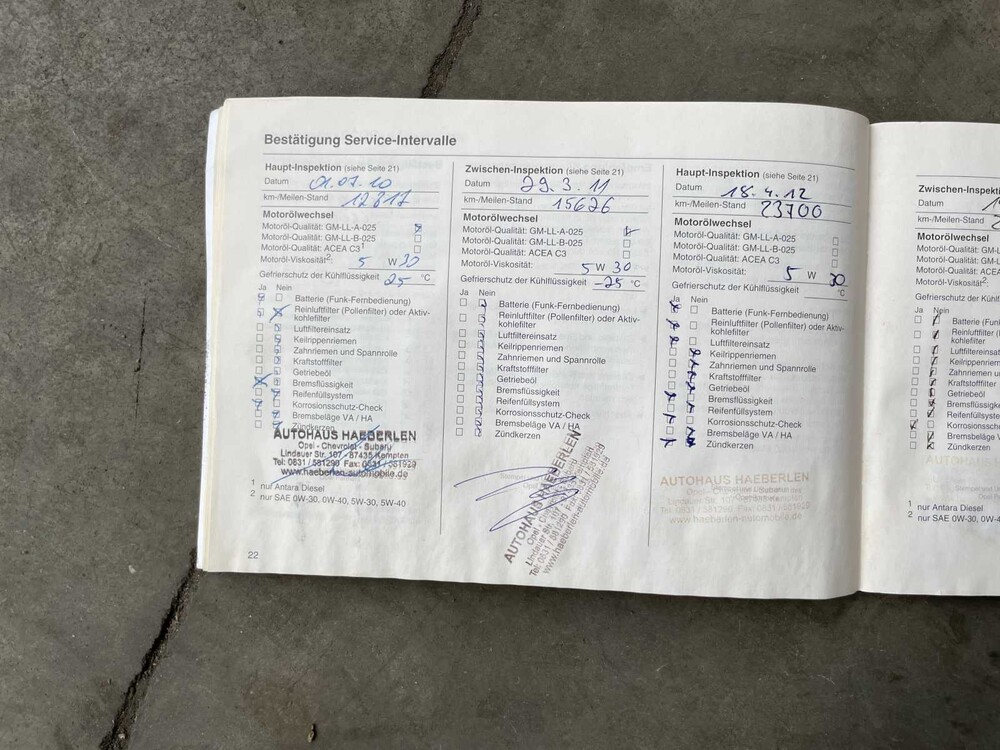 Bestätigung Service-Intervalle
Haupt-Inspektion (siehe Seite 21)
Datum 01.07.10
km-/Meilen-Stand 12817
Motorölwechsel
Motoröl-Qualität: GM-LL-A-025
Motoröl-Qualität: GM-LL-B-025
Motoröl-Qualität: ACEA C3¹
Motoröl-Viskosität²: 5 W 30
Gefrierschutz der Kühlflüssigkeit 25 °C
Ja Nein
Batterie (Funk-Fernbedienung)
Reinluftfilter (Pollenfilter) oder Aktiv-
kohlefilter
Luftfiltereinsatz
Keilrippenriemen
Zahnriemen und Spannrolle
Kraftstofffilter
Getriebeöl
Bremsflüssigkeit
Reifenfüllsystem
Korrosionsschutz-Check
Bremsbeläge VA / HA
Zündkerzen
AUTOHAUS HAEBERLEN
Opel - Chevrolet - Subaru
Lindauer Str. 107 - 87435 Kempten
Tel: 0831 / 581290 Fax: 0831 / 581929
www.haeberlen-automobile.de
1 nur Antara Diesel
2 nur SAE 0W-30, 0W-40, 5W-30, 5W-40
22
Zwischen-Inspektion (siehe Seite 21)
Datum 29.3.11
km-/Meilen-Stand 15626
Motorölwechsel
Motoröl-Qualität: GM-LL-A-025
Motoröl-Qualität: GM-LL-B-025
Motoröl-Qualität: ACEA C3
Motoröl-Viskosität: 5 W 30
Gefrierschutz der Kühlflüssigkeit -25 °C
Ja Nein
Batterie (Funk-Fernbedienung)
Reinluftfilter (Pollenfilter) oder Aktiv-
kohlefilter
Luftfiltereinsatz
Keilrippenriemen
Zahnriemen und Spannrolle
Kraftstofffilter
Getriebeöl
Bremsflüssigkeit
Reifenfüllsystem
Korrosionsschutz-Check
Bremsbeläge VA / HA
Zündkerzen
AUTOHAUS HAEBERLEN
Lindauer Str. 107
Tel: 0831 / 581290
www.haeberlen-automobile.de
Haupt-Inspektion (siehe Seite 21)
Datum 18.4.12
km-/Meilen-Stand 23700
Motorölwechsel
Motoröl-Qualität: GM-LL-A-025
Motoröl-Qualität: GM-LL-B-025
Motoröl-Qualität: ACEA C3
Motoröl-Viskosität: 5 W 30
Gefrierschutz der Kühlflüssigkeit °C
Ja Nein
Batterie (Funk-Fernbedienung)
Reinluftfilter (Pollenfilter) oder Aktiv-
kohlefilter
Luftfiltereinsatz
Keilrippenriemen
Zahnriemen und Spannrolle
Kraftstofffilter
Getriebeöl
Bremsflüssigkeit
Reifenfüllsystem
Korrosionsschutz-Check
Bremsbeläge VA / HA
Zündkerzen
AUTOHAUS HAEBERLEN
www.haeberlen-automobile.de
Zwischen-Inspekt
Datum
km-/Meilen-Stand
Motorölwechsel
Motoröl-Qualität: GM
Motoröl-Qualität: GM
Motoröl-Qualität: ACE
Motoröl-Viskosität²:
Gefrierschutz der Kühlf
Ja Nein
Batterie (Fun
Reinluftfilter (
kohlefilter
Luftfiltereinsatz
Keilrippenrieme
Zahnriemen u
Kraftstofffilter
Getriebeöl
Bremsflüssigk
Reifenfüllsyste
Korrosionsschu
Bremsbeläge V
Zündkerzen
AUTOHAUS
1 nur Antara Diesel
2 nur SAE 0W-30, 0W-4